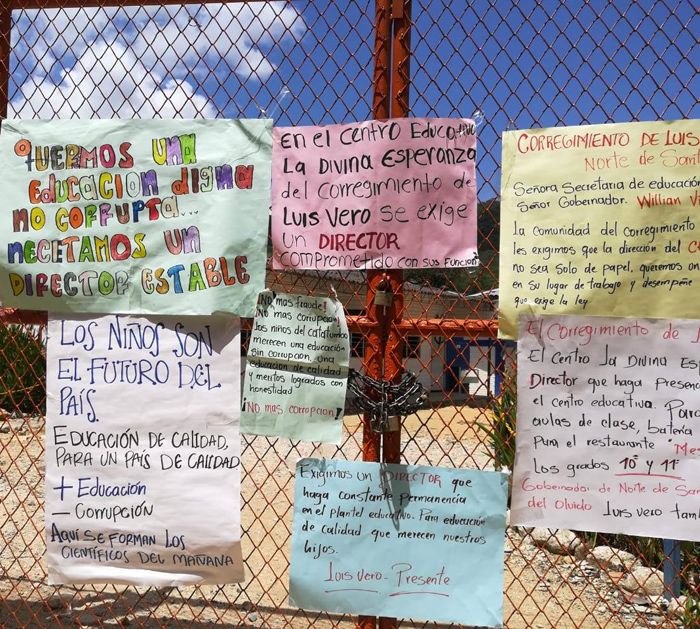 QUERMOS UNA
EDUCACION digna
NO CORRUPTA...
NECETAMOS UN
DIRECTOR ESTABLE
EN el CENTRO EDUCATIVO
LA DIVINA ESPERANZA
del CORREGIMIENTO de
LUIS VERO SE EXIGE
UN DIRECTOR
COMPROMETIDO CON SUS FUNCION
CORREGIMIENTO DE LUIS
NORTE de SAN
Señora Secretaria de educación
Señor Gobernador. Willian Vi
La comunidad del corregimiento
les exigimos que la direccion del
no sea solo de papel, queremos
en su lugar de trabajo y desempeñe
que exige la ley
LOS NIÑOS SON
EL FUTURO DEL
PAÍS.
EDUCACIÓN DE CALIDAD,
PARA UN PAÍS DE CALIDAD
+ EDUCACIÓN
- CORRUPCIÓN
AQUÍ SE FORMAN LOS
CIENTÍFICOS DEL MAÑANA
No mas fraude!
No mas corrupcion
los niños del catatumbo
merecen una educación
sin corrupcion. Una
educación de calidad
y meritos logrados con
honestidad
¡No mas corrupcion!
Exigimos un DIRECTOR que
haga constante permanencia
en el plantel educativo. Para educación
de calidad que merecen nuestros
hijos.
Luis Vero - Presente
El Corregimiento de
El Centro La Divina Esp
Director que haga presenc
el centro educativo. Par
aulas de clase, bateria
Para el restaurante "Me
Los grados 10° y 11°
Gobernador de Norte de San
del Olvido Luis vero tam